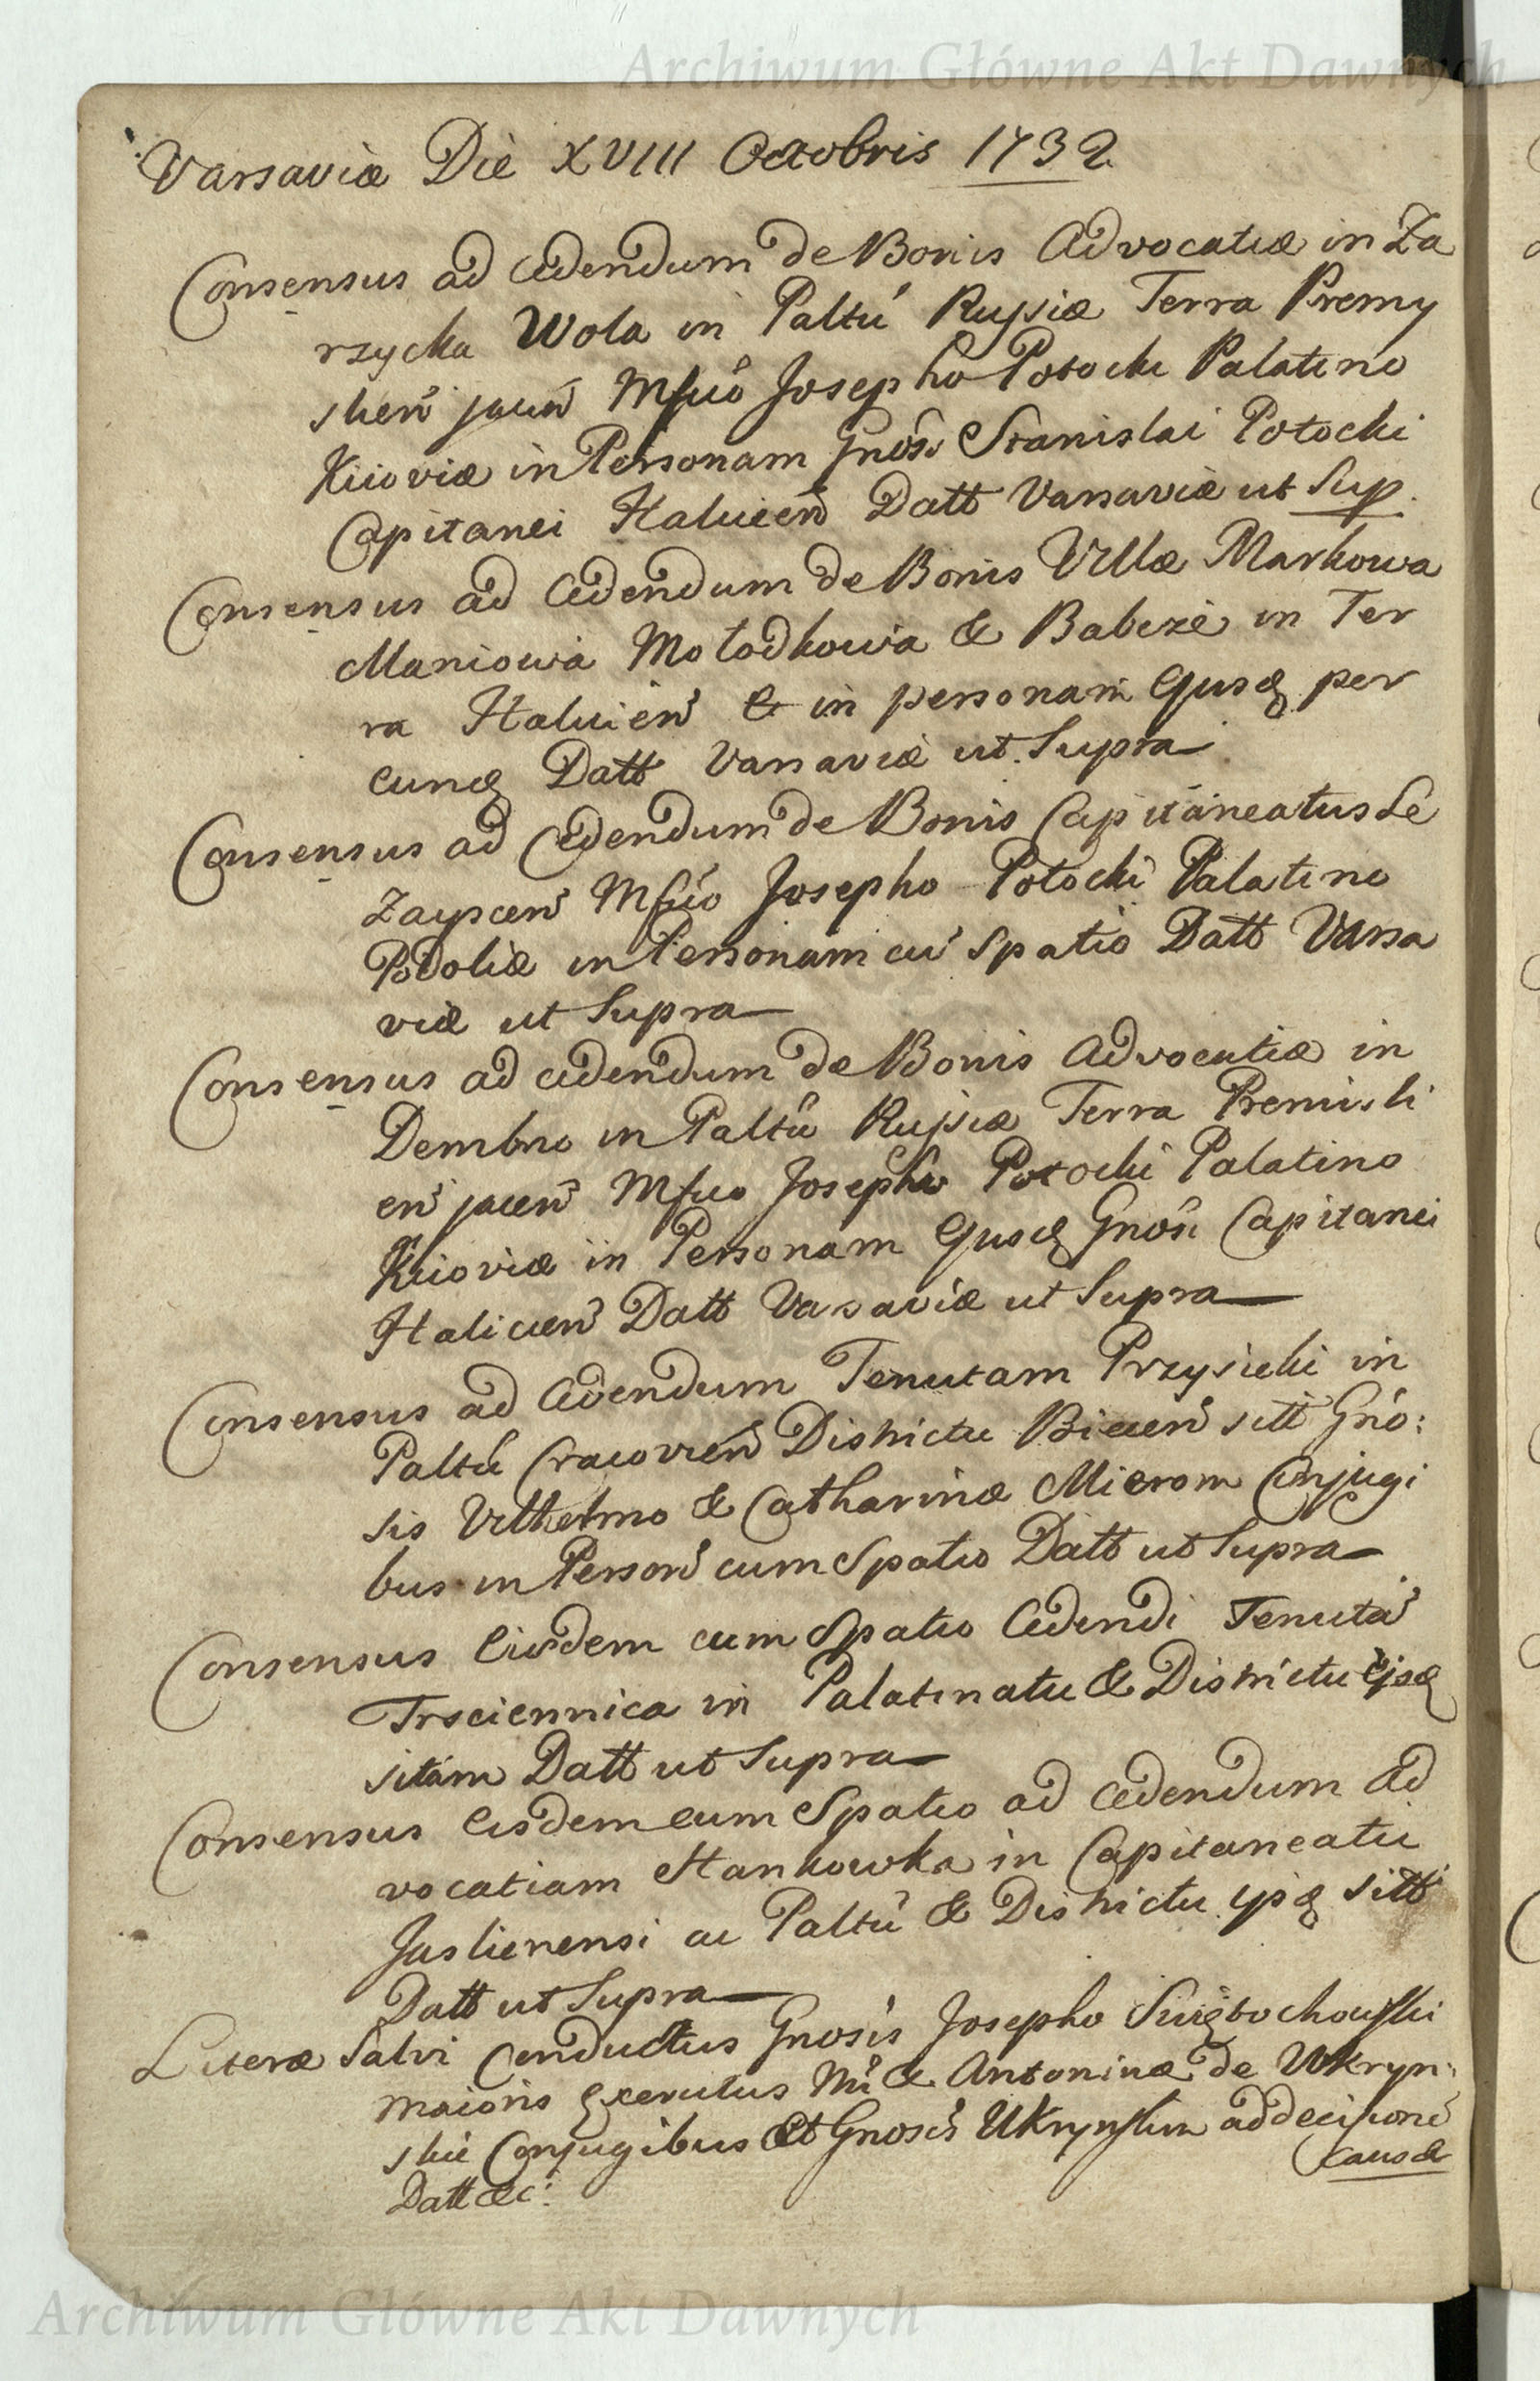 Archiwum Główne Akt Dawnych
Varsaviæ Die XVIII Octobris 1732
Consensus ad cedendum de Bonis Advocatiæ in Za
rzycka Wola in Paltũ Russiæ Terra Premy
slień jaceń Mfico Josepho Potocki Palatino
Kijoviæ in Personam Gnosi Stanislai Potocki
Capitanei Halicień Datt Varsaviæ ut Sup.
Consensus ad Cedendum de Bonis Villæ Markowa
Maniowa Mołodkowa & Babcze in Ter
ra Halicień & in personam Ejusd per
eund Datt Varsaviæ ut Supra
Consensus ad Cedendum de Bonis Capitaneatus Le
żaysceń Mfico Josepho Potocki Palatino
Podoliæ in Personam cũ Spatio Datt Varsa
viæ ut Supra
Consensus ad cedendum de Bonis Advocatiæ in
Dembno in Paltũ Russiæ Terra Premisli
eń jaceń Mfico Josepho Potocki Palatino
Kijoviæ in Personam Ejusd Gnosi Capitanei
Haliceń Datt Varsaviæ ut Supra
Consensus ad Cedendum Tenutam Przysieki in
Paltũ Cracovień Districtu Bieceń sitt Gno:
sis Vilhelmo & Catharinæ Mierom Conjugi
bus in Persoń cum Spatio Datt ut Supra
Consensus Eisdem cum Spatio Cedendi Tenutã
Trsciennica in Palatinatu & Districtu
sitam Datt ut Supra
Consensus Eisdem cum Spatio ad Cedendum Ad
vocatiam Hankowka in Capitaneatu
Jaslienensi ac Paltũ & Districtu sitt
Datt ut Supra
Literæ Salvi Conductus Gnosis Josepho Swiętochowski
maioris Exercitus & Antoninæ de Ukryn:
skie Conjugibus Et Gnosis ad decisionẽ
Causæ
Datt &c:
Archiwum Główne Akt Dawnych